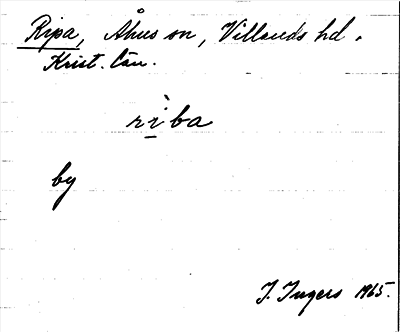 Ripa, Åhus sn, Villands hd.
Krist. län.
rìba
by
I. Ingers 1965.